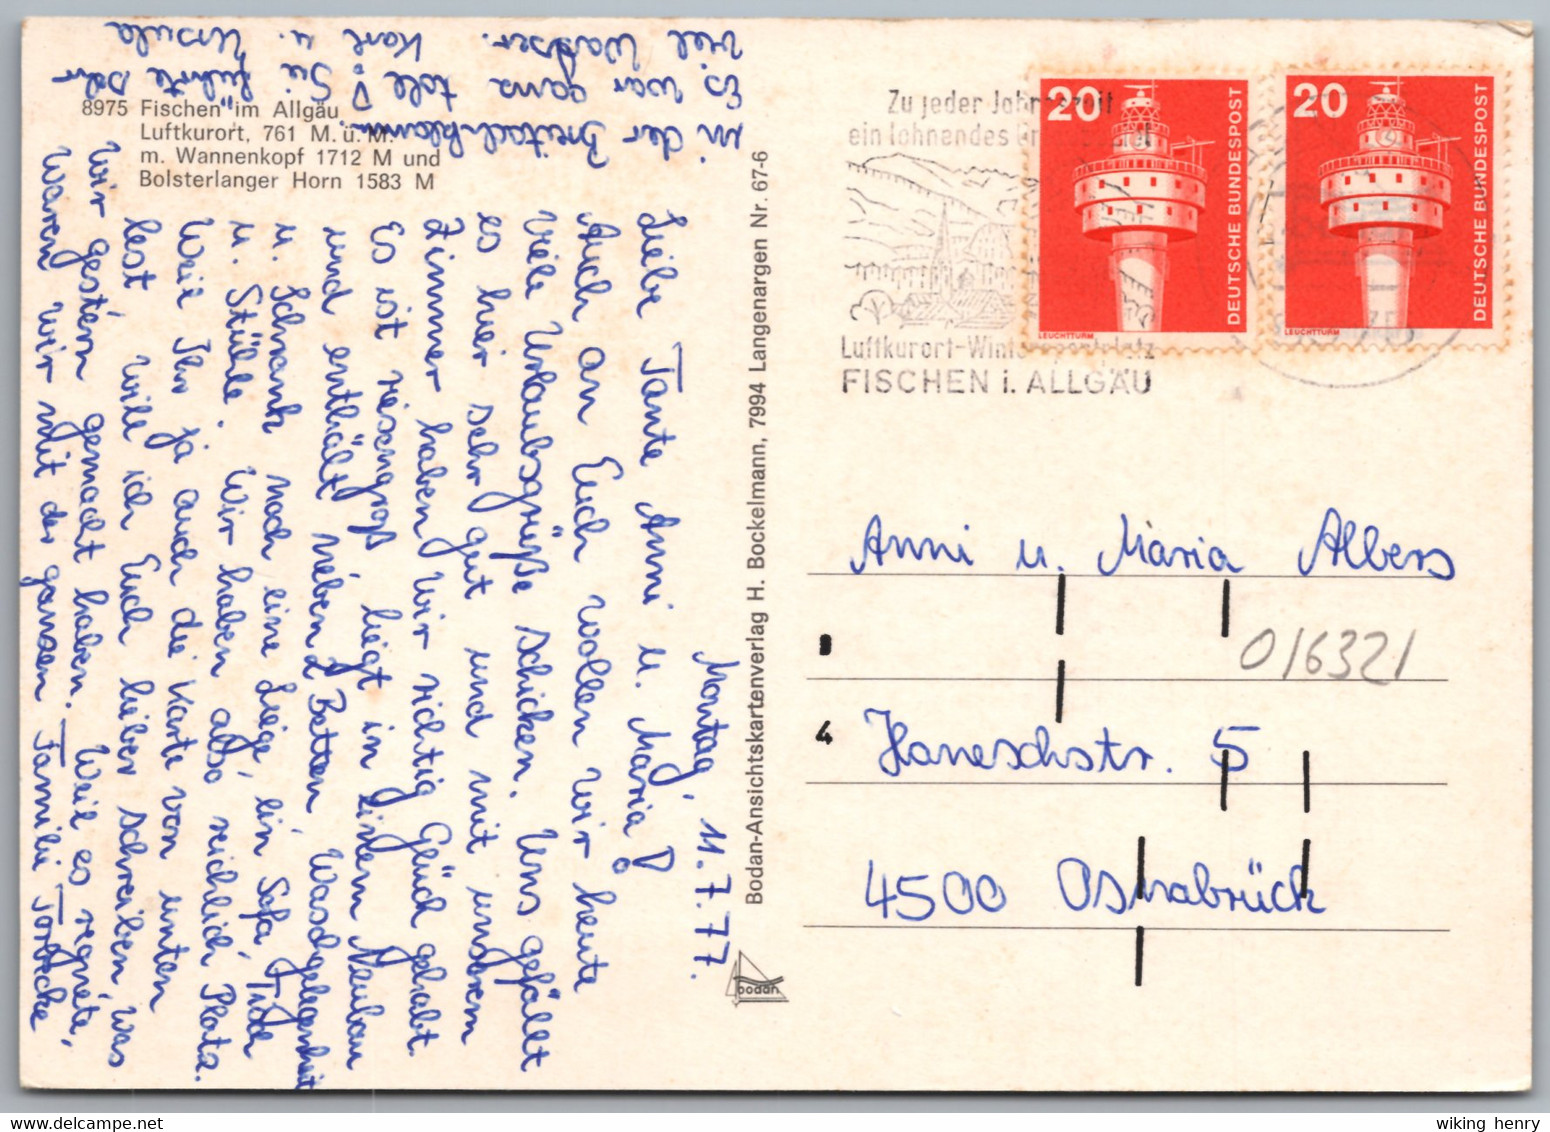 8975 Fischen im Allgäu
Luftkurort, 761 M. ü. M.
m. Wannenkopf 1712 M und
Bolsterlanger Horn 1583 M
Montag, 11.7.77.
Liebe Tante Anni u. Maria!
Auch an Euch wollen wir heute
viele Urlaubsgrüße schicken. Uns gefällt
es hier sehr gut und mit unserem
Zimmer haben wir richtig Glück gehabt.
Es ist riesengroß, liegt in einem Neubau
und enthält neben 2 Betten, Waschgelegenheit
u. Schrank noch eine Liege, ein Sofa, Tisch
u. Stühle. Wir haben also reichlich Platz.
Weil Ihr ja auch die Karte von unten
lest, will ich Euch lieber schreiben, was
wir gestern gemacht haben. Weil es regnete,
waren wir mit der ganzen Familie Torbecke
in der Breitachklamm.
Es war ganz toll! Sie führte sehr
viel Wasser. Karl u. Ursula
Bodan-Ansichtskartenverlag H. Bockelmann, 7994 Langenargen Nr. 67-6
bodan
Zu jeder Jahreszeit
ein lohnendes
Luftkurort-Wintersportplatz
FISCHEN i. ALLGÄU
20
DEUTSCHE BUNDESPOST
LEUCHTTURM
20
DEUTSCHE BUNDESPOST
LEUCHTTURM
Anni u. Maria Albers
016321
8
4
Haneschstr. 5
4500 Osnabrück
wiking henry